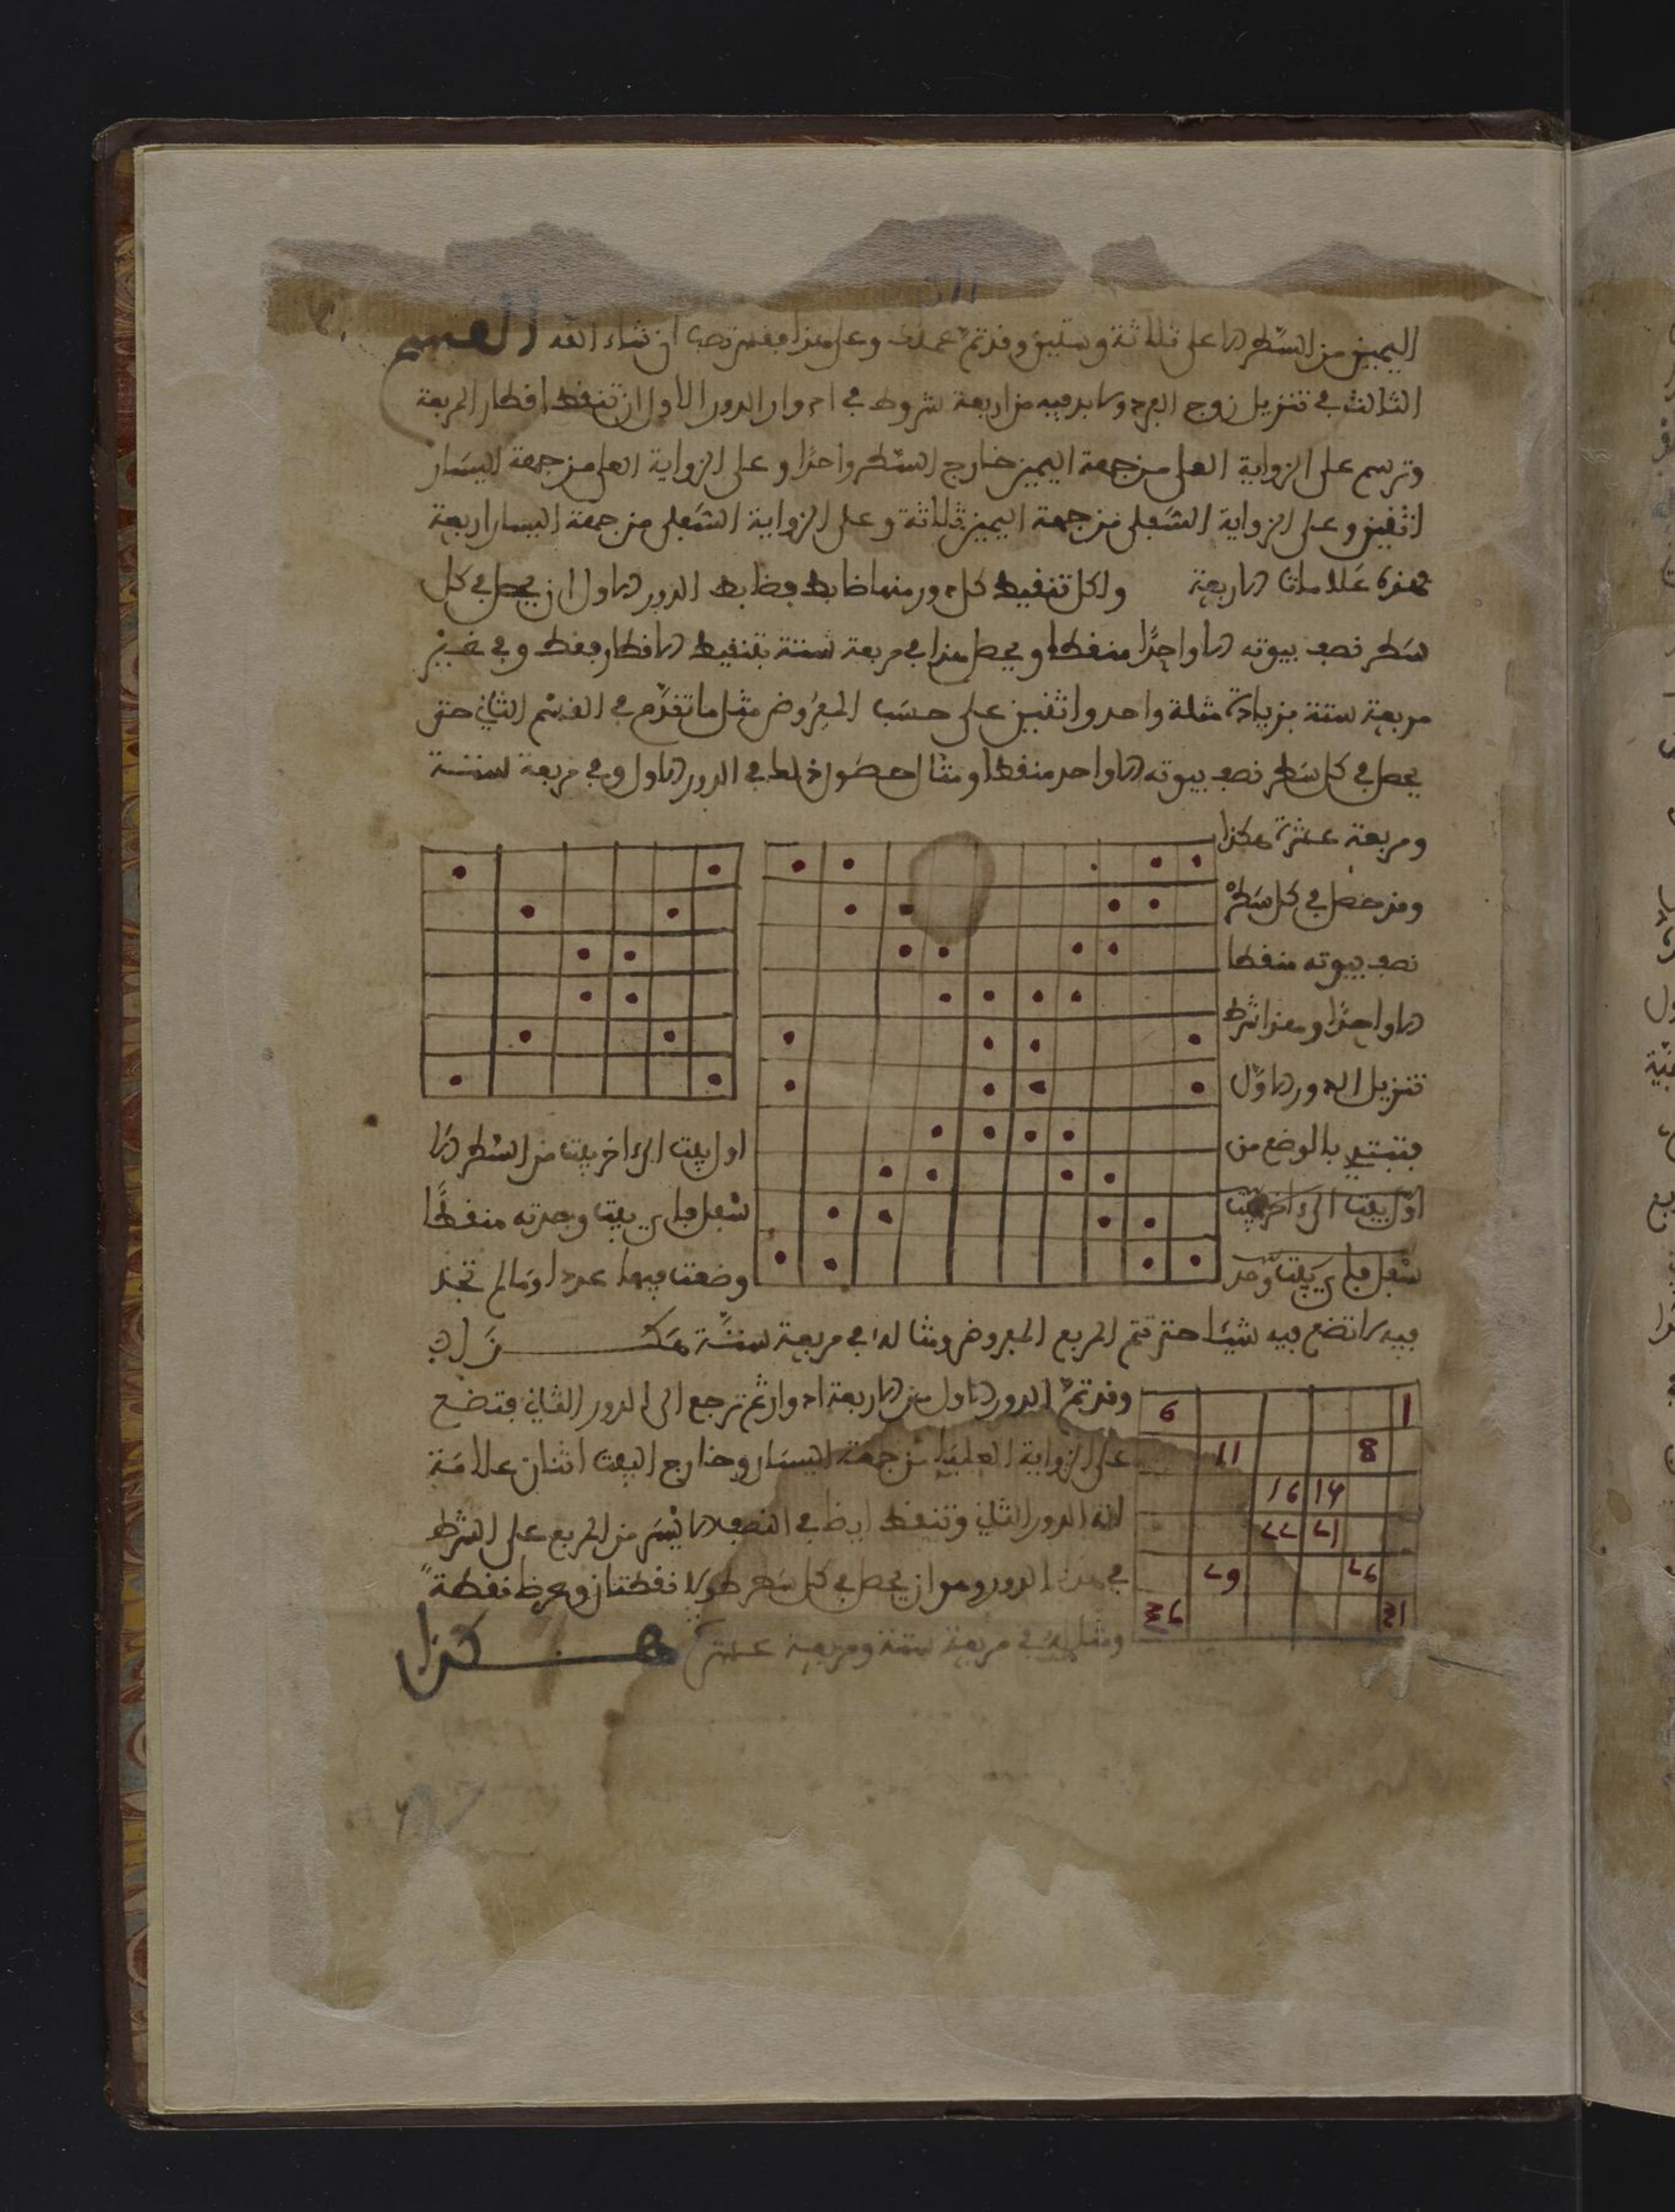 اليمين من السطر الاعلى ثلاثة وستين وقد تم عملك وعلى هذا فقس تصب ان شاء الله القسم
الثالث في تنزيل زوج الفرد ولا بد فيه من اربعة شروط في ادوار الدور الاول ان تنقط اقطار المربعة
وترسم على الزواية العلى من جهة اليمين خارج السطر واحدًا وعلى الزواية العلى من جهة اليسار
اثنين وعلى الزواية السفلى من جهة اليمين ثلاثة وعلى الزواية السفلى من جهة اليسار اربعة
فهذه علامات الاربعة ولكل تنقيط كل دور منها ضابط فضابط الدور الاول ان يحصل في كل
سطر نصف بيوته الا واحدًا منقطا ويحصل هذا في مربعة ستة بتنقيط الاقطار فقط وفي غير
مربعة ستة بزيادة مثلة واحد واثنين على حسب المفروض مثل ما تقدم في القسم الثاني حتى
يحصل في كل سطر نصف بيوته الا واحد منقطا ومثال حصول ذلك في الدور الاول وفي مربعة ستة
ومربعة عشرة هكذا
وقد حصل في كل سطر
نصف بيوته منقطا
الا واحدًا وهذا شرط
تنزيل الدور الاول
فتبتدي بالوضع من
اول بيت الى اخر بيت
اول بيت الى اخر بيت من السطر الا
سفل فاي بيت وجد
سفل فاي بيت وجدته منقطًا
وضعت فيها عددا وما لم تجد
فيه لا تضع فيه شيئا حتى تتم المربع المفروض ومثاله في مربعة ستة هكذا
وقد تم الدور الاول من الاربعة ادوار ثم ترجع الى الدور الثاني فتضع
على الزواية العليا من جهة اليسار وخارج البيت اثنان علامة
انه الدور الثاني وتنقط ايضا في النصف الايسر من المربع على الشرط
في هذا الدور وهو ان يحصل في كل سطر طولا نقطتان وعرضا نقطة
ومثاله في مربعة ستة ومربعة عشرة هكذا
6 1
11 8
16 14
22 21
29 26
36 31